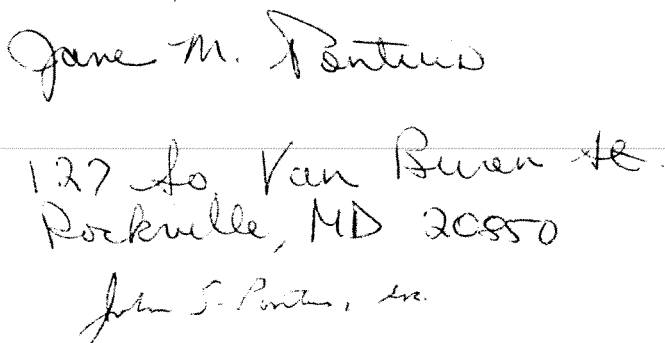 Jane M. Pontius
127 So. Van Buren St.
Rockville, MD 20850
John S. Pontius,